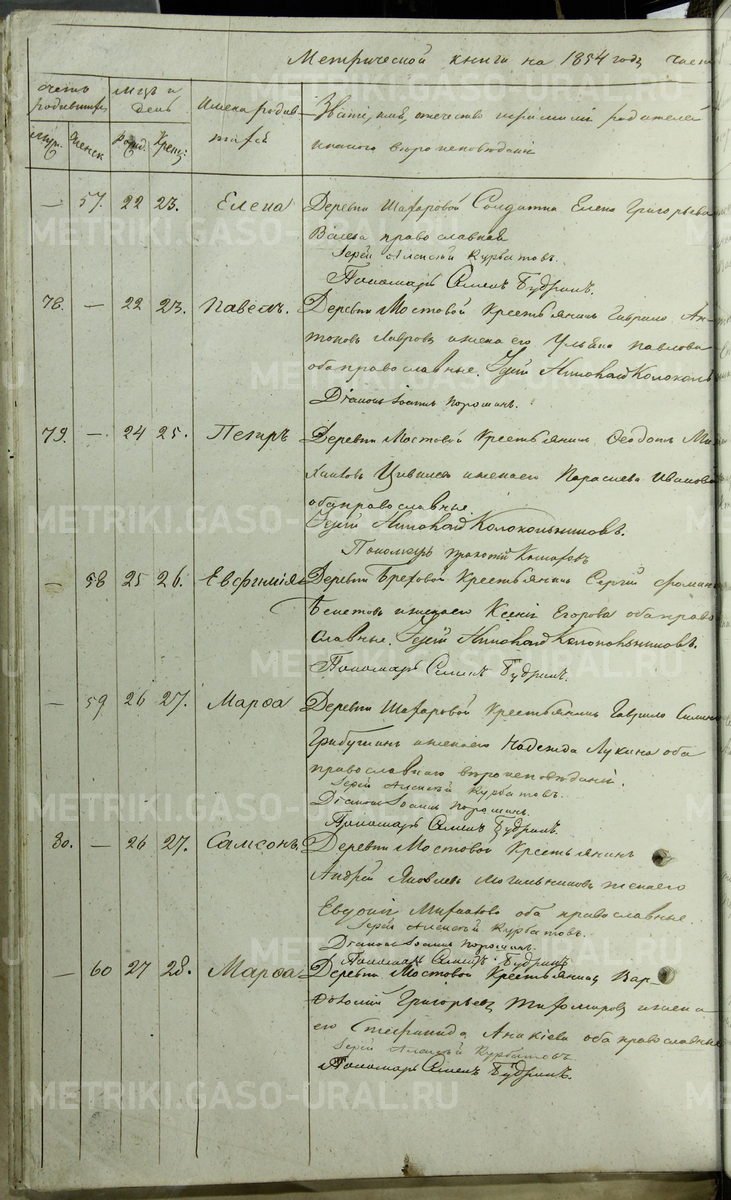 Метрической книги на 1854 годъ части
Счетъ родившихся
Мцъ и день
Имена родившихся
Званіе, имя, отчество и фамилія родителей
и какого вѣроисповѣданія
Муж.
Женск.
Рожд.
Крещ.
— 57. 22 23. Елена Деревни Шаҳаровой Солдатка Елена Григорьева
православной
Іерей Алексѣй Курбатовъ.
Пономарь Семенъ Будринъ.
78. — 22 23. Павелъ. Деревни Мостовой Крестьянинъ Гаврило Ан-
тоновъ Лавровъ и жена его Ульяна Павлова
оба православные. Іерей Колоколь
Діаконъ Іоаннъ Порошинъ.
79. — 24 25. Петръ Деревни Мостовой Крестьянинъ Ѳеодотъ Ми-
хаиловъ и жена его Параскева Иванова
оба православные.
Іерей Колокольниковъ.
Пономарь
— 58 25 26. Евфимія Деревни Брехов­ой Крестьянинъ Сергій Фоминъ
и жена его Ксенія Егорова оба право
славные. Іерей Колокольниковъ.
Пономарь Семенъ Будринъ.
— 59 26 27. Марѳа Деревни Крестьянинъ Гаврило
Грибушинъ и жена его Надежда Лукина оба
православнаго вѣроисповѣданія.
Іерей Алексѣй Курбатовъ.
Діаконъ Іоаннъ Порошинъ.
Пономарь Семенъ Будринъ.
80. — 26 27. Самсонъ Деревни Мостовой Крестьянинъ
Андрей Яковлевъ Могильниковъ жена его
Евдокія оба православные.
Іерей Алексѣй Курбатовъ.
Діаконъ Іоаннъ Порошинъ.
Пономарь Семенъ Будринъ.
— 60 27 28. Марѳа Деревни Мостовой Крестьянинъ Вар-
ѳоломей Григорьевъ Тихомировъ и жена
его Стефанида Анакіева оба православные
Іерей Алексѣй Курбатовъ.
Пономарь Семенъ Будринъ.
METRIKI.GASO-URAL.RU